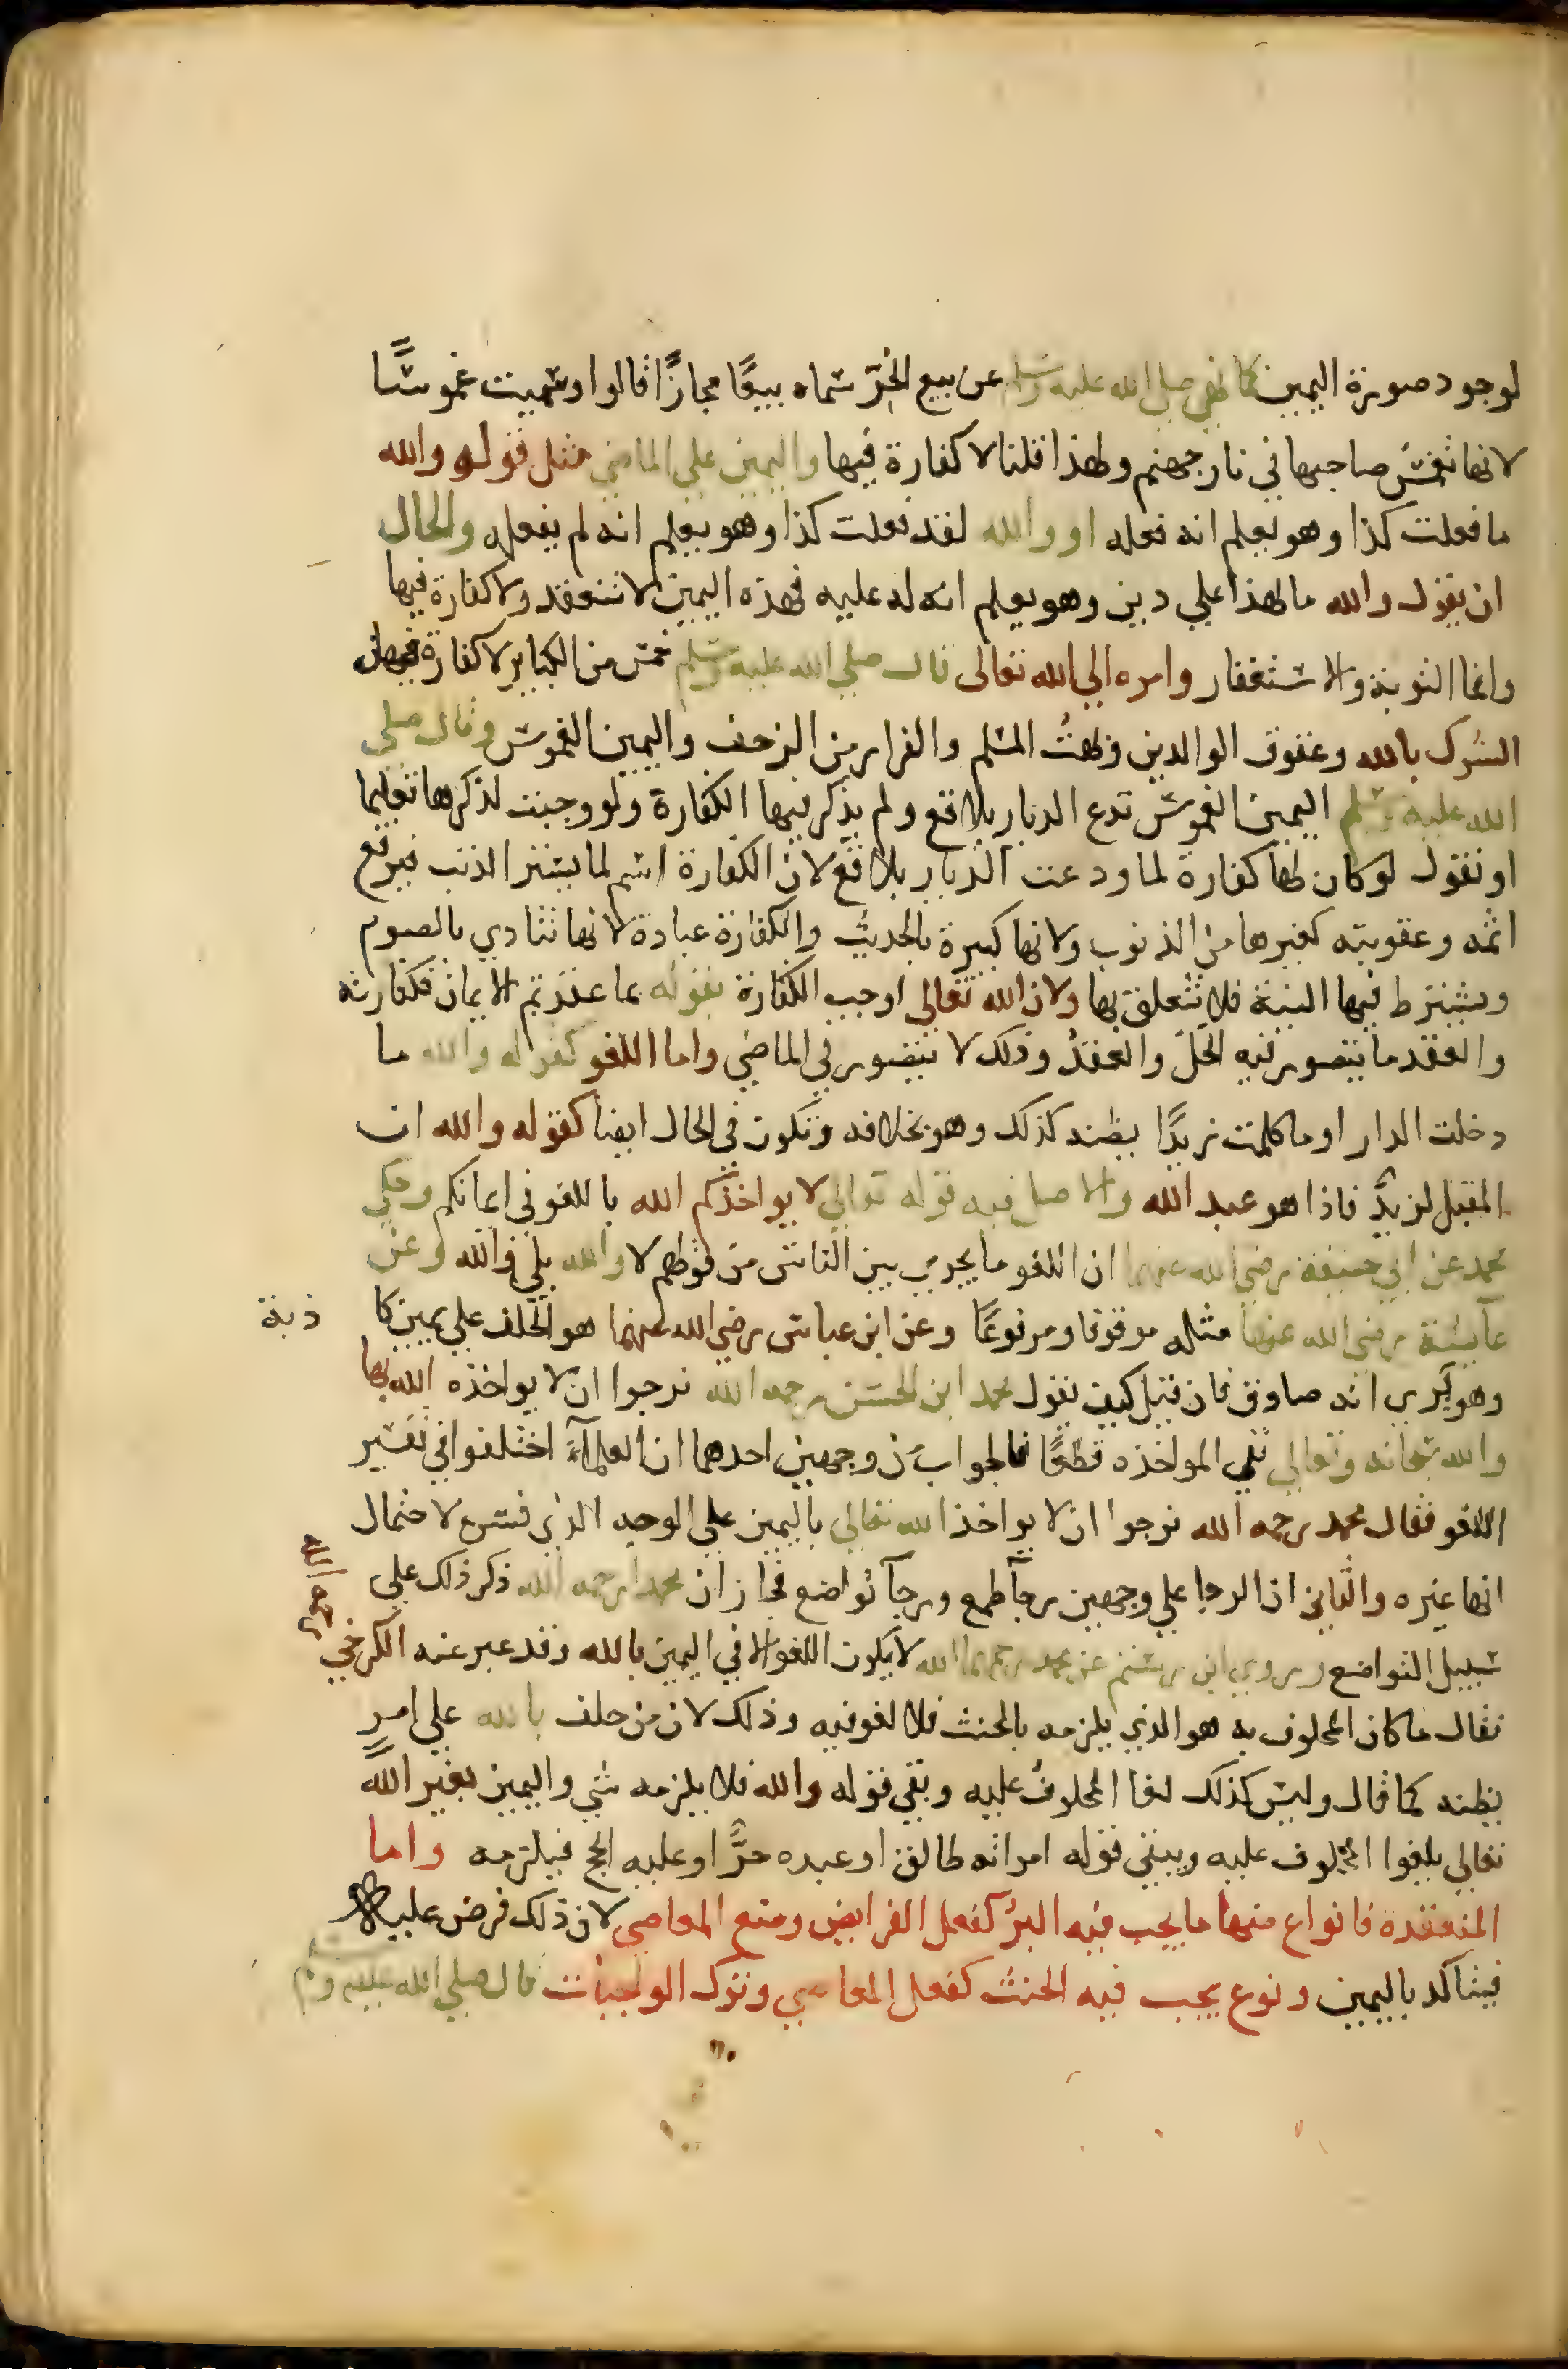 لوجود صورة اليمين كما نهي صلي الله عليه وسلم عن بيع الحرّ سماه بيعًا مجازًا قالوا وسميت غموسًا
لانها تغمس صاحبها في نار جهنم ولهذا قلنا لا كفارة فيها واليمين علي الماضي مثل قوله والله
ما فعلت كذا وهو يعلم انه فعله او والله لقد فعلت كذا وهو يعلم انه لم يفعله والحال
ان يقول والله ما لهذا علي دين وهو يعلم انه له عليه فهذه اليمين لا تنعقد ولا كفارة فيها
وانما التوبة والاستغفار وامره الي الله تعالى قال صلي الله عليه وسلم خمس من الكباير لا كفارة فيهن
الشرك بالله وعقوق الوالدين وبهتُ المسلم والفرار من الزحف واليمين الغموس وقال صلي
الله عليه وسلم اليمين الغموس تدع الديار بلاقع ولم يذكر فيها الكفارة ولو وجبت لذكرها تعليما
او نقول لو كان لها كفارة لما ودعت الديار بلاقع لان الكفارة اسم لما يستر الذنب فيرفع
اثمه وعقوبته كغيرها من الذنوب ولانها كبيرة بالحديث والكفارة عبادة لانها تتادي بالصوم
ويشترط فيها النية فلا تتعلق بها ولان الله تعالي اوجب الكفارة بقوله بما عقدتم الايمان فكفارته
والعقد ما يتصور فيه الحلّ والعقدُ وذلك لا يتصور في الماضي واما اللغو كقوله والله ما
دخلت الدار او ما كلمت زيدًا يظنه كذلك وهو بخلافه وتكون في الحال ايضا كقوله والله ان
المقبل لزيدٌ فاذا هو عبد الله والاصل فيه قوله تعالي لا يواخذكم الله باللغو في ايمانكم وحكي
محمد عن ابي حنيفة رضي الله عنهما ان اللغو ما يجري بين الناس من قولهم لا والله بلي والله وعن
عآيشة رضي الله عنها مثله موقوفا ومرفوعًا وعن ابن عباس رضي الله عنهما هو الحلف علي يمين كا
ذبة
وهو يَري انه صادق فان قيل كيف يقول محمد ابن الحسن رحمه الله نرجوا ان لا يواخذه الله بها
والله سبحانه وتعالي نفي المواخذه قطعًا فالجواب من وجهين احدهما ان العلمآء اختلفوا في تفسير
اللغو فقال محمد رحمه الله نرجوا ان لا يواخذ الله تعالي باليمين علي الوجه الذي فسر لاحتمال
انها غيره والثاني اذ الرجا علي وجهين رجآ طمع ورجآ تواضع فجاز ان محمدا رحمه الله ذكر ذلك علي
سبيل التواضع وروي ابن رستم عن محمد رحمهما الله لا يكون اللغو الا في اليمين بالله وقد عبر عنه الكرخي
رحمه الله
فقال ما كان المحلوف به هو الذي يلزمه بالحنث فلا لغو فيه وذلك لان من حلف بالله علي امرٍ
يظنه كما قال وليس كذلك لغا المحلوفُ عليه وبقي قوله والله فلا يلزمه شي واليمين بغير الله
تعالي يلغوا المحلوف عليه ويبقي قوله امراته طالق او عبده حرٌّ او عليه الحج فيلزمه واما
المنعقدة فانواع منها ما يجب فيه البرُّ كفعل الفرايض ومنع المعاصي لان ذلك فرض عليه
فيتاكد باليمين ونوع يجب فيه الحنث كفعل المعاصي وترك الواجبات قال صلي الله عليه وسلم